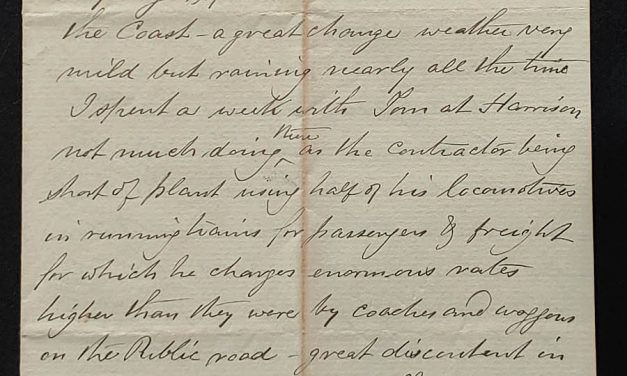 the Coast – a great change weather very
mild but raining nearly all the time
I spent a week with Tom at Harrison
not much doing there as the contractor being
short of plant using half of his locomotives
in running trains for passengers & freight
for which he charges enormous rates
higher than they were by coaches and waggons
on the Public road – great discontent in